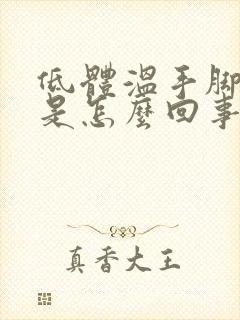 低體溫手腳
是怎麼回事
真香大王